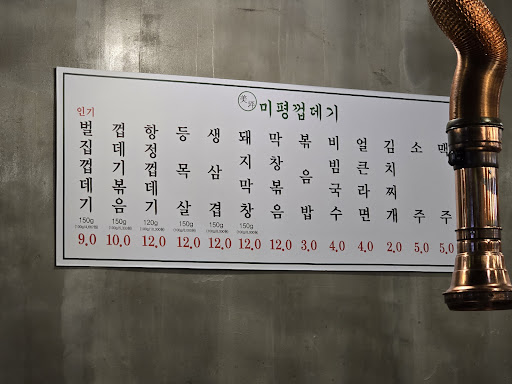 美平 미평껍데기
인기
벌집껍데기
150g
9.0
껍데기볶음
150g
10.0
항정껍데기
120g
12.0
등목살
150g
12.0
생삼겹
150g
12.0
돼지막창
150g
12.0
막창볶음
12.0
볶음밥
3.0
비빔국수
4.0
얼큰라면
4.0
김치찌개
2.0
소주
5.0
맥주
5.0